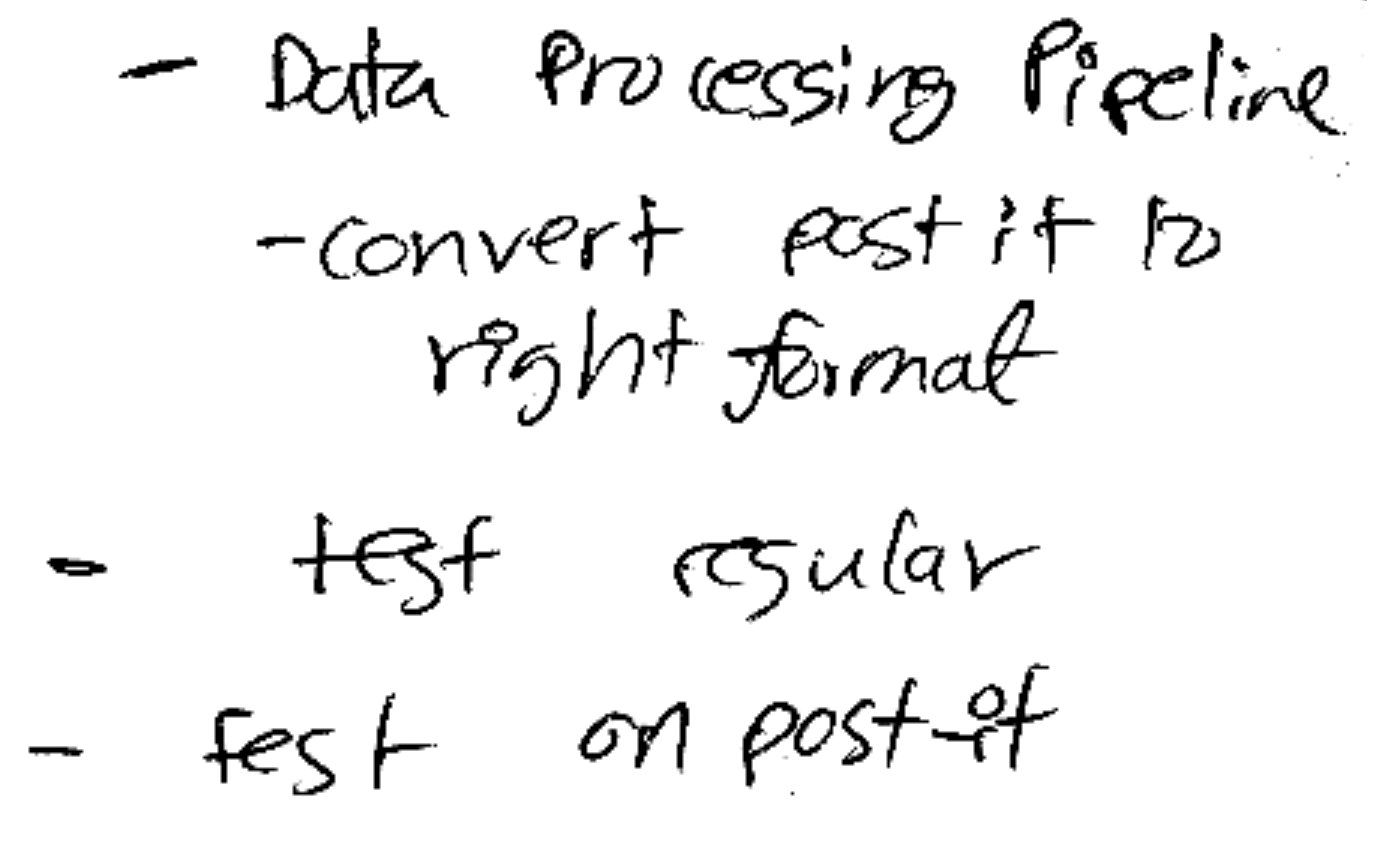 - Data Processing Pipeline
- convert post it to
right format
- test regular
- test on post-it